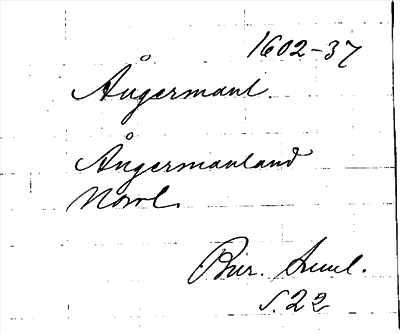 1602-37
Ångermanl.
Ångermanland
Norrl.
Bur. Suml.
s. 22